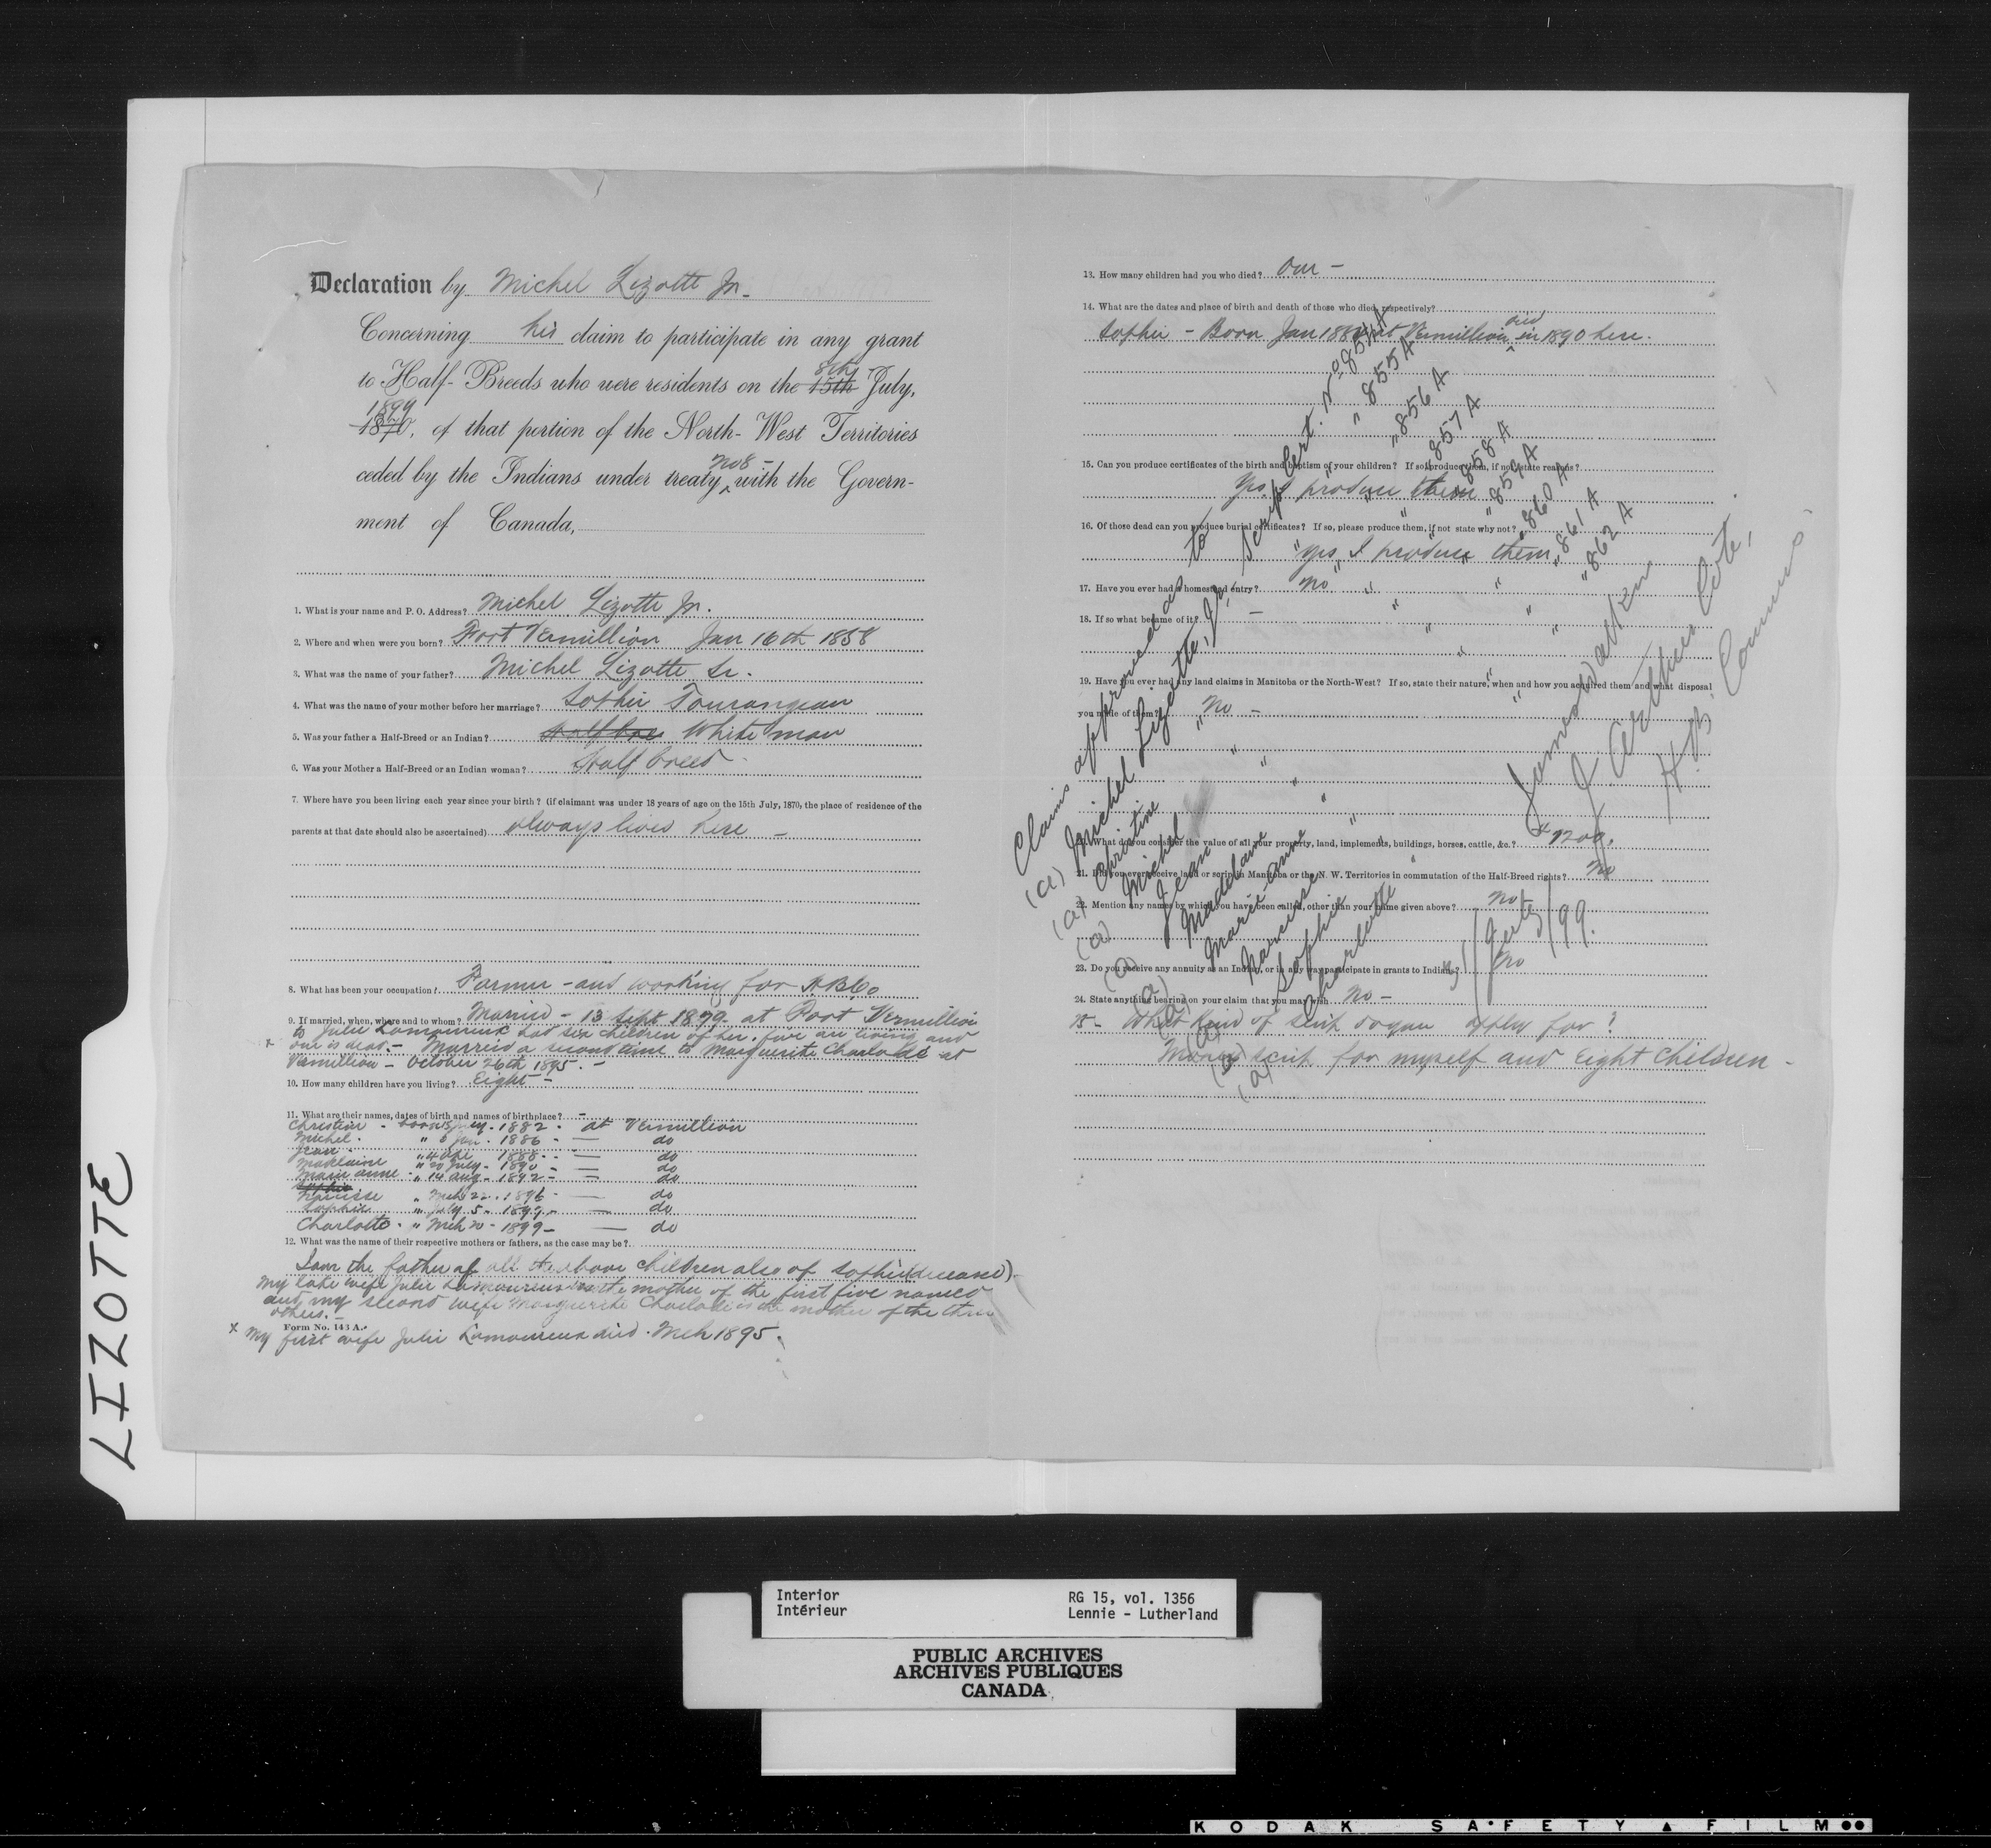 LIZOTTE
Declaration by Michel Lizotte Jr.
Concerning his claim to participate in any grant
8th
to Half-Breeds who were residents on the 15th July,
1899
1870, of that portion of the North-West Territories
No 8 -
ceded by the Indians under treaty ^ with the Govern-
ment of Canada,
1. What is your name and P. O. Address? Michel Lizotte Jr.
2. Where and when were you born? Fort Vermillion Jan 16th 1858
3. What was the name of your father? Michel Lizotte Sr.
4. What was the name of your mother before her marriage? Sophie Tourangeau
5. Was your father a Half-Breed or an Indian? Half bree White man
6. Was your Mother a Half-Breed or an Indian woman? Half breed -
7. Where have you been living each year since your birth? (if claimant was under 18 years of age on the 15th July, 1870, the place of residence of the
parents at that date should also be ascertained) always lived here -
8. What has been your occupation? Farmer - and working for HBCo
9. If married, when, where and to whom? Married - 13 Sept 1879 at Fort Vermillion
to Julie Lamoureux had six children of her. five are living and
x one is dead. - Married a second time to Marguerite Charlotte at
Vermillion - October 26th 1895. -
10. How many children have you living? Eight -
11. What are their names, dates of birth and names of birthplace? -
Christine - born 1882 - at Vermillion
Michel - " 6 Jan - 1886 - do
Jean " 4 1888 - do
Madelaine " 20 July - 1890 - do
Marie anne - " 14 Aug - 1892 - do
Sophie
Narcisse " Mch 22 - 1896 - do
Sophie " July 5 - 1897 - do
Charlotte - " Mch 20 - 1899 - do
12. What was the name of their respective mothers or fathers, as the case may be?
I am the father of all the above children also of Sophie (deceased) -
My late wife Julie Lamoureux was the mother of the first five named
and my second wife Marguerite is the mother of the three
others. -
Form No. 143 A.
x My first wife Julie Lamoureux died - Mch 1895.
13. How many children had you who died? One -
14. What are the dates and place of birth and death of those who died, respectively?
died
Sophie - Born Jan at Vermillion ^ in 1890 here.
15. Can you produce certificates of the birth and baptism of your children? If so produce them, if not state reasons?
Yes, I produce them
16. Of those dead can you produce burial certificates? If so, please produce them, if not state why not?
Yes I produce them
17. Have you ever had a homestead entry? No
18. If so what became of it? -
19. Have you ever had any land claims in Manitoba or the North-West? If so, state their nature, when and how you acquired them and what disposal
you made of them? No -
20. What do you consider the value of all your property, land, implements, buildings, horses, cattle, &c.? $1200.
21. Did you ever receive land or scrip in Manitoba or the N. W. Territories in commutation of the Half-Breed rights? No
22. Mention any names by which you have been called, other than your name given above? No
23. Do you receive any annuity as an Indian, or in any way participate in grants to Indians? No
24. State anything bearing on your claim that you may wish No -
25 - What kind of scrip do you apply for?
Money scrip for myself and Eight Children -
Claims approved as to
(a) Michel Lizotte, Jr, Scrip Cert. No 854 A
(a) Christine " " " 855 A
(a) Michel " " " 856 A
(a) Jean " " " 857 A
(a) Madelaine " " " 858 A
(a) Marie-Anne " " " 859 A
(a) Narcisse " " " 860 A
(a) Sophie " " " 861 A
(a) Charlotte " " " 862 A
31/July/99.
James Walker
J. Arthur Coté,
H. B. Commrs.
Interior RG 15, vol. 1356
Intérieur Lennie - Lutherland
PUBLIC ARCHIVES
ARCHIVES PUBLIQUES
CANADA
KODAK SAFETY FILM